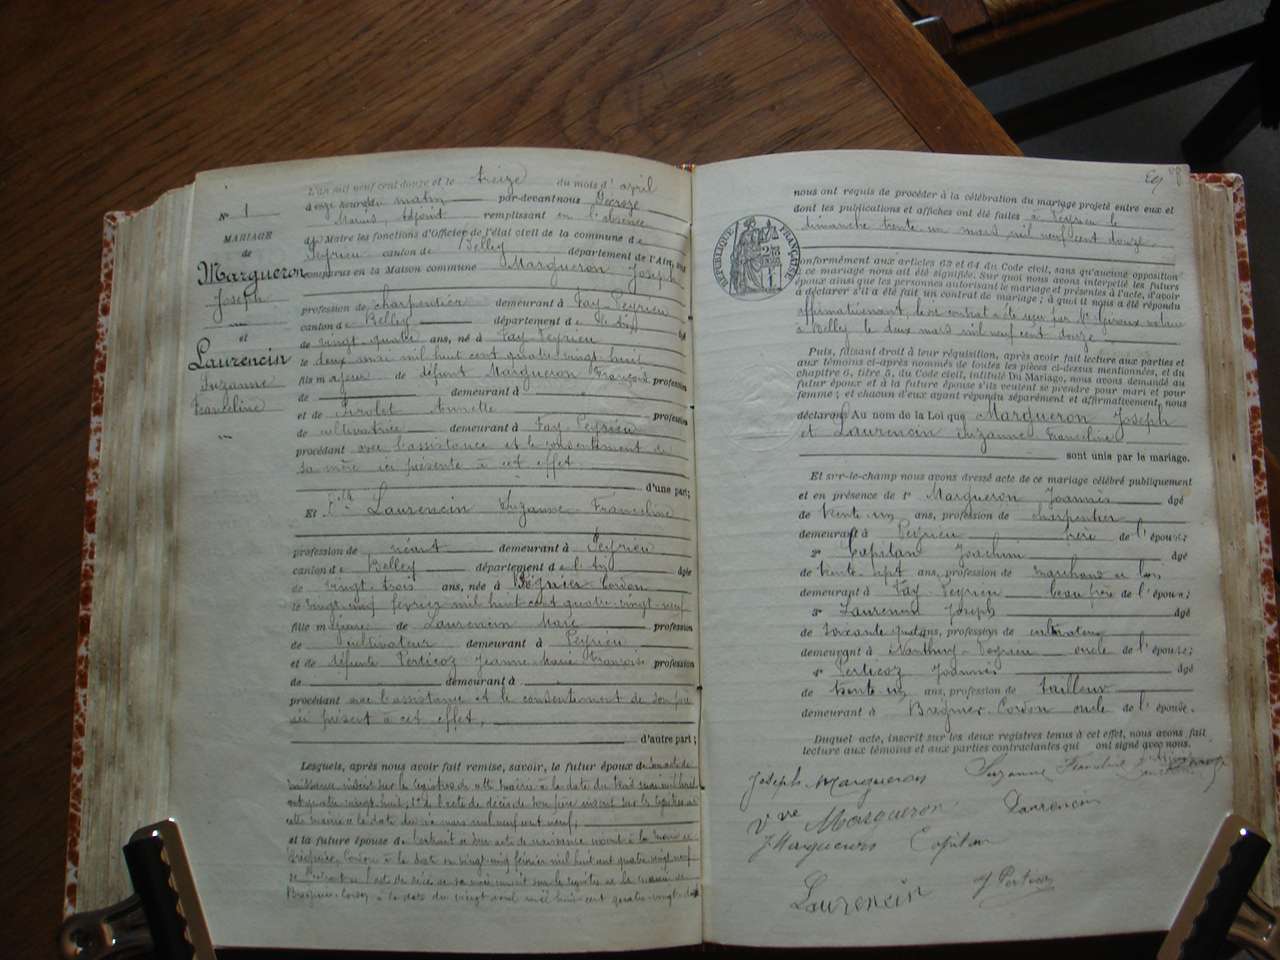 L'an mil neuf cent douze et le treize du mois d'avril
à onze heures du matin par-devant nous Décroze
Marius, adjoint remplissant en l'absence
du Maire les fonctions d'Officier de l'état civil de la commune de
Peyrieu canton de Belley département de l'Ain, ont
comparus en la Maison commune Margueron Joseph
profession de charpentier demeurant à Fay-Peyrieu
canton de Belley département de l'Ain âgé
de vingt-quatre ans, né à Fay-Peyrieu
le deux mil huit cent quatre-vingt-huit
fils majeur de défunt Margueron François profession
de demeurant à
et de Annette profession
de cultivatrice demeurant à Fay-Peyrieu
procédant avec l'assistance et le consentement de
sa mère ici présente à cet effet.
d'une part;
Et Laurencin Suzanne Franceline
profession de néant demeurant à Peyrieu
canton de Belley département de l'Ain âgée
de vingt-trois ans, née à Brégnier-Cordon
le vingt-cinq février mil huit cent quatre-vingt-neuf
fille majeure de Laurencin Marc profession
de cultivateur demeurant à Peyrieu
et de défunte Perticoz Jeanne-Marie Françoise profession
de demeurant à
procédant avec l'assistance et le consentement de son père
ici présent à cet effet,
d'autre part;
Lesquels, après nous avoir fait remise, savoir, le futur époux de son acte de
naissance inscrit sur les registres de cette mairie à la date du
cent quatre vingt huit, de l'acte de décès de son père inscrit sur les registres de
cette mairie à la date du mars mil neuf cent neuf,
et la future épouse de l'extrait de son acte de naissance inscrit à la mairie de
Brégnier-Cordon à la date du vingt-cinq février mil huit cent quatre vingt neuf
de l'acte de décès de sa mère inscrit sur le registre de la mairie de
Brégnier-Cordon à la date du vingt avril mil huit cent quatre-vingt-
N° 1
MARIAGE
de
Margueron
Joseph
et
Laurencin
Suzanne
Franceline
nous ont requis de procéder à la célébration du mariage projeté entre eux et
dont les publications et affiches ont été faites à Peyrieu le
dimanche trente un mars mil neuf cent douze
RÉPUBLIQUE FRANÇAISE
conformément aux articles 63 et 64 du Code civil, sans qu'aucune opposition
à ce mariage nous ait été signifiée. Sur quoi nous avons interpellé les futurs
époux ainsi que les personnes autorisant le mariage et présentes à l'acte, d'avoir
à déclarer s'il a été fait un contrat de mariage; à quoi il nous a été répondu
affirmativement, le contrat a été reçu par notaire
à Belley le deux mars mil neuf cent douze
Puis, faisant droit à leur réquisition, après avoir fait lecture aux parties et
aux témoins ci-après nommés de toutes les pièces ci-dessus mentionnées, et du
chapitre 6, titre 5, du Code civil, intitulé Du Mariage, nous avons demandé au
futur époux et à la future épouse s'ils veulent se prendre pour mari et pour
femme; et chacun d'eux ayant répondu séparément et affirmativement, nous
déclarons Au nom de la Loi que Margueron Joseph
et Laurencin Suzanne Franceline
sont unis par le mariage.
Et sur-le-champ nous avons dressé acte de ce mariage célébré publiquement
et en présence de 1° Margueron Joannès âgé
de trente un ans, profession de charpentier
demeurant à Peyrieu frère de l'époux;
2° Capitan Joachim âgé
de trente-sept ans, profession de marchand de bois
demeurant à Fay-Peyrieu beau frère de l'époux;
3° Laurencin Joseph âgé
de soixante quatre ans, profession de cultivateur
demeurant à Nanthuy-Peyrieu oncle de l'épouse;
4° Perticoz Joannès âgé
de trente un ans, profession de tailleur
demeurant à Brégnier-Cordon oncle de l'épouse.
Duquel acte, inscrit sur les deux registres tenus à cet effet, nous avons fait
lecture aux témoins et aux parties contractantes qui ont signé avec nous.
Joseph Margueron Suzanne Franceline
Vve Margueron Laurencin
J Margueron Capitan
Laurencin J Perticoz